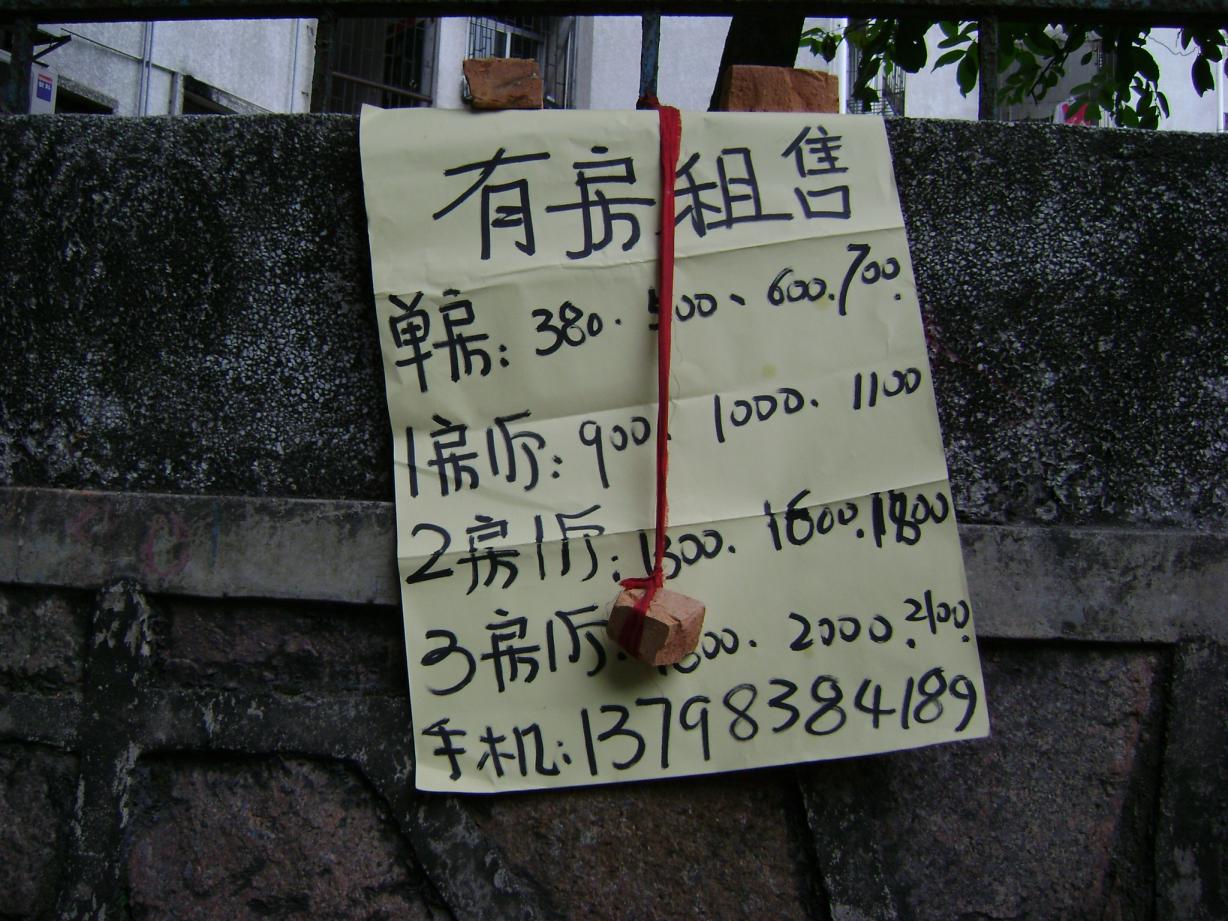 有房租售
单房：380. 500、600.700.
1房1厅：900. 1000. 1100
2房1厅：1300. 1600.1800
3房1厅： 2000.2100.
手机：13798384189